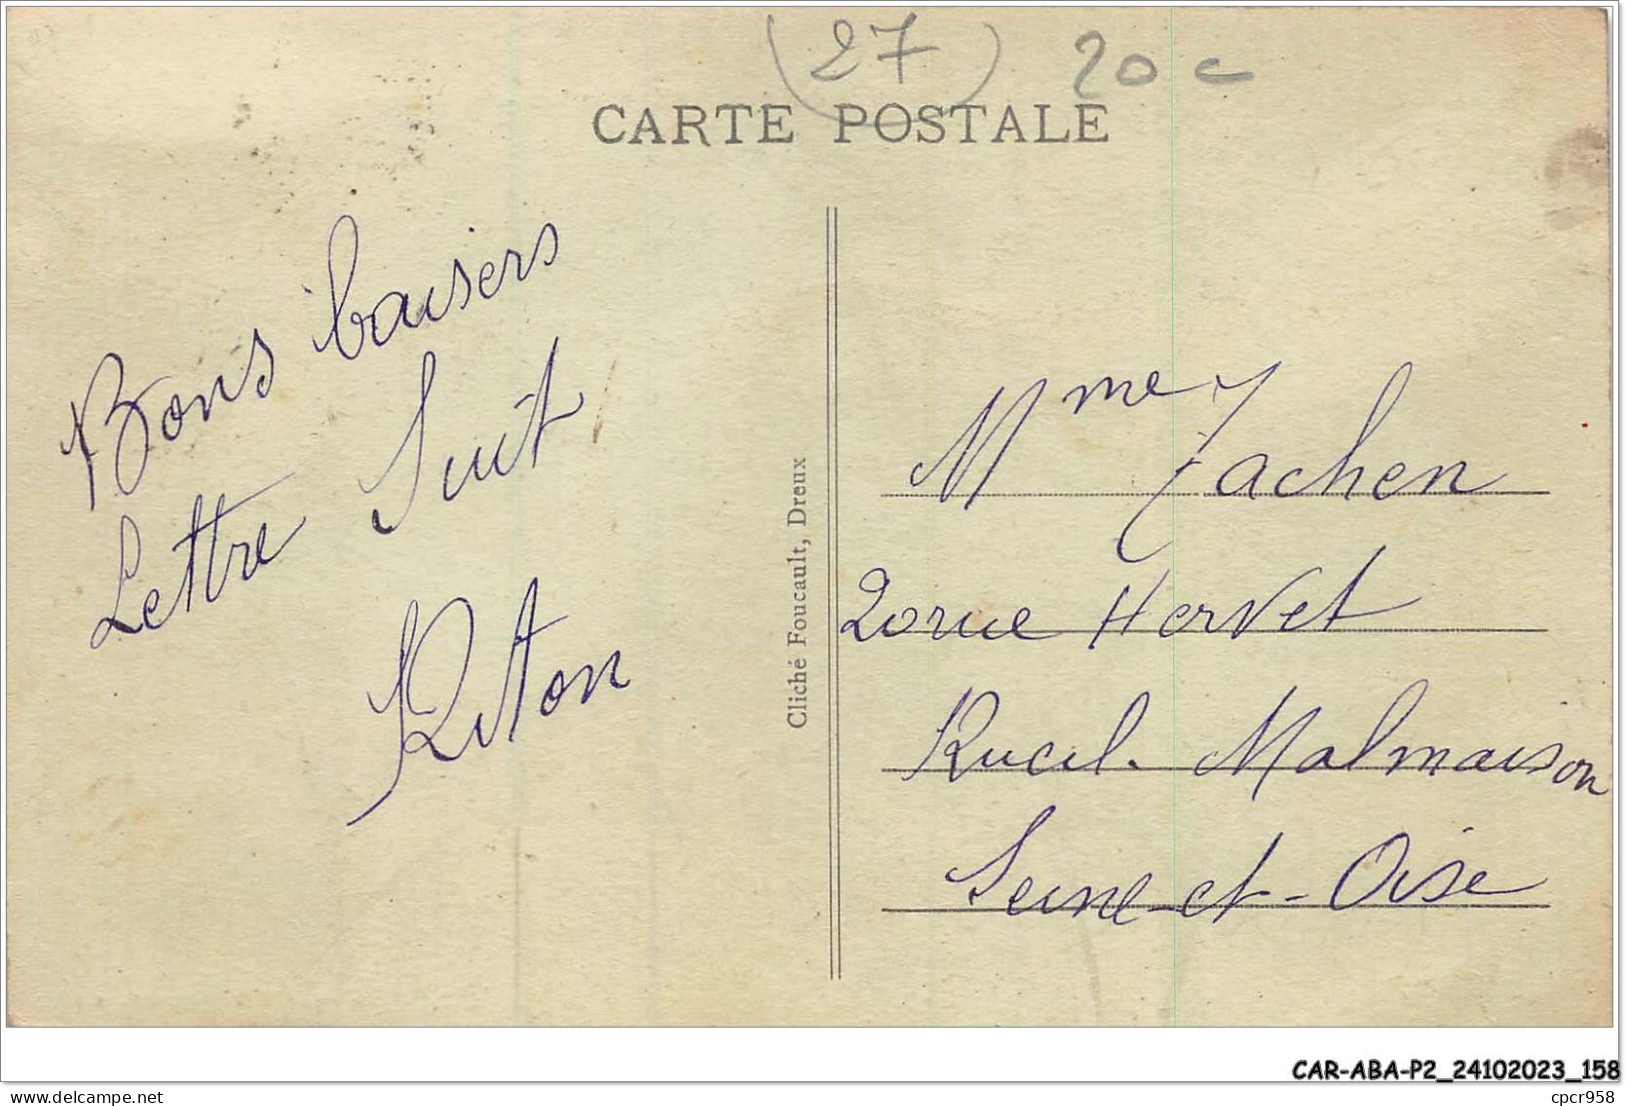 (27) 20 c
CARTE POSTALE
Bons baisers
Lettre Suit
Riton
Cliché Foucault, Dreux
Mme Jachen
20 rue Hervet
Rueil. Malmaison
Seine-et-Oise
CAR-ABA-P2_24102023_158
delcampe.net
cpcr958